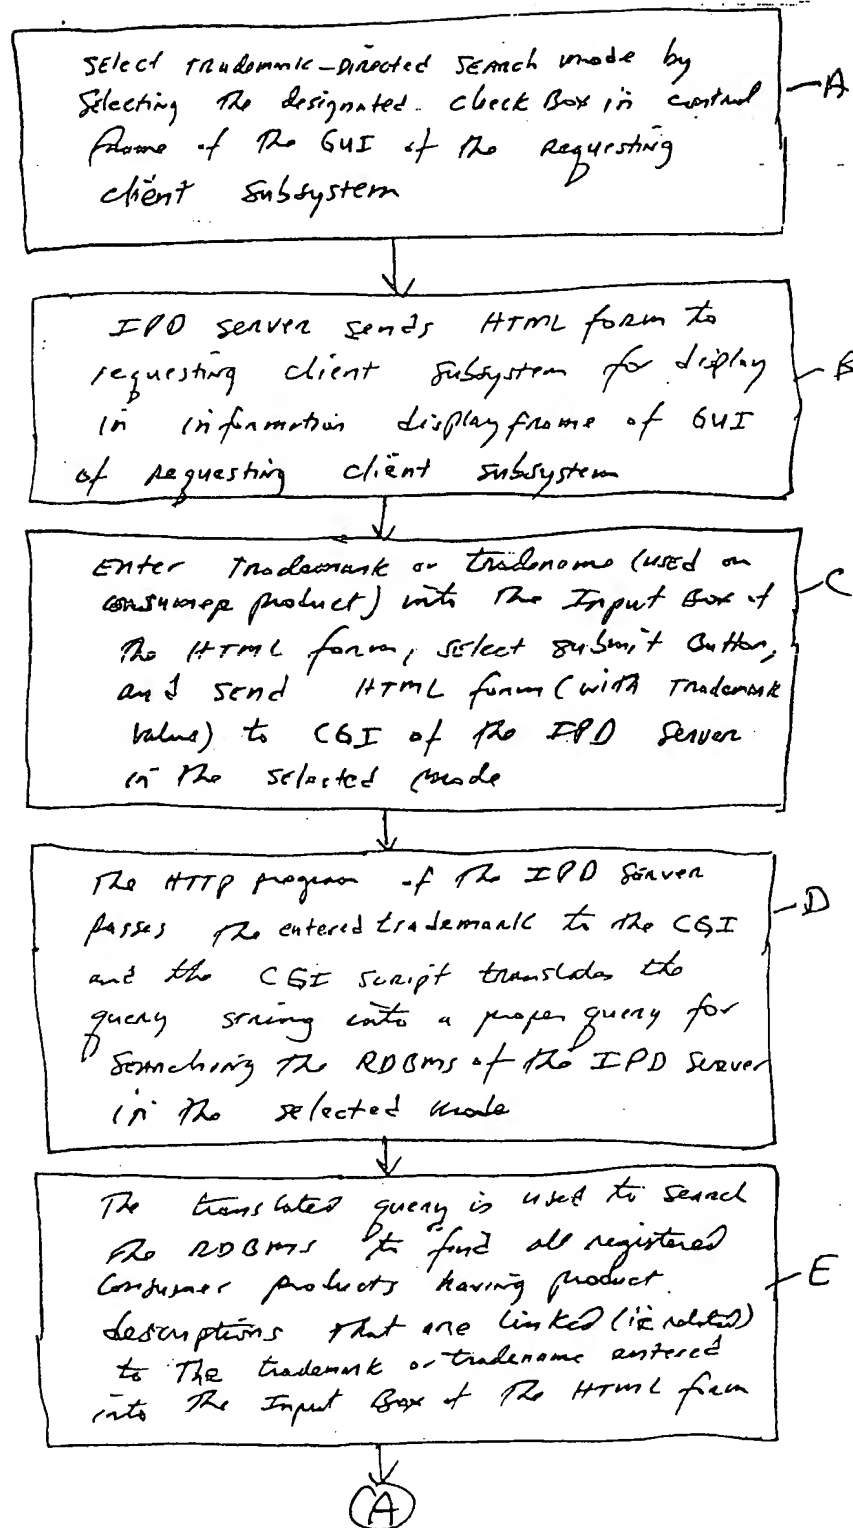 Select Trademark-Directed Search mode by
Selecting the designated check Box in control
frame of the GUI of the Requesting
client subsystem
A
IPD server sends HTML form to
requesting client subsystem for display
in information display frame of GUI
of requesting client subsystem
B
Enter Trademark or tradename (used on
consumer product) into the Input Box of
the HTML form, select submit Button,
and send HTML form (with Trademark
value) to CGI of the IPD Server
in the selected mode
C
The HTTP program of the IPD Server
passes the entered trademark to the CGI
and the CGI script translates the
query string into a proper query for
Searching the RDBMS of the IPD Server
in the selected mode
D
The translated query is used to search
the RDBMS to find all registered
Consumer products having product
descriptions that are linked (ie related)
to The trademark or tradename entered
into The Input Box of The HTML form
E
A